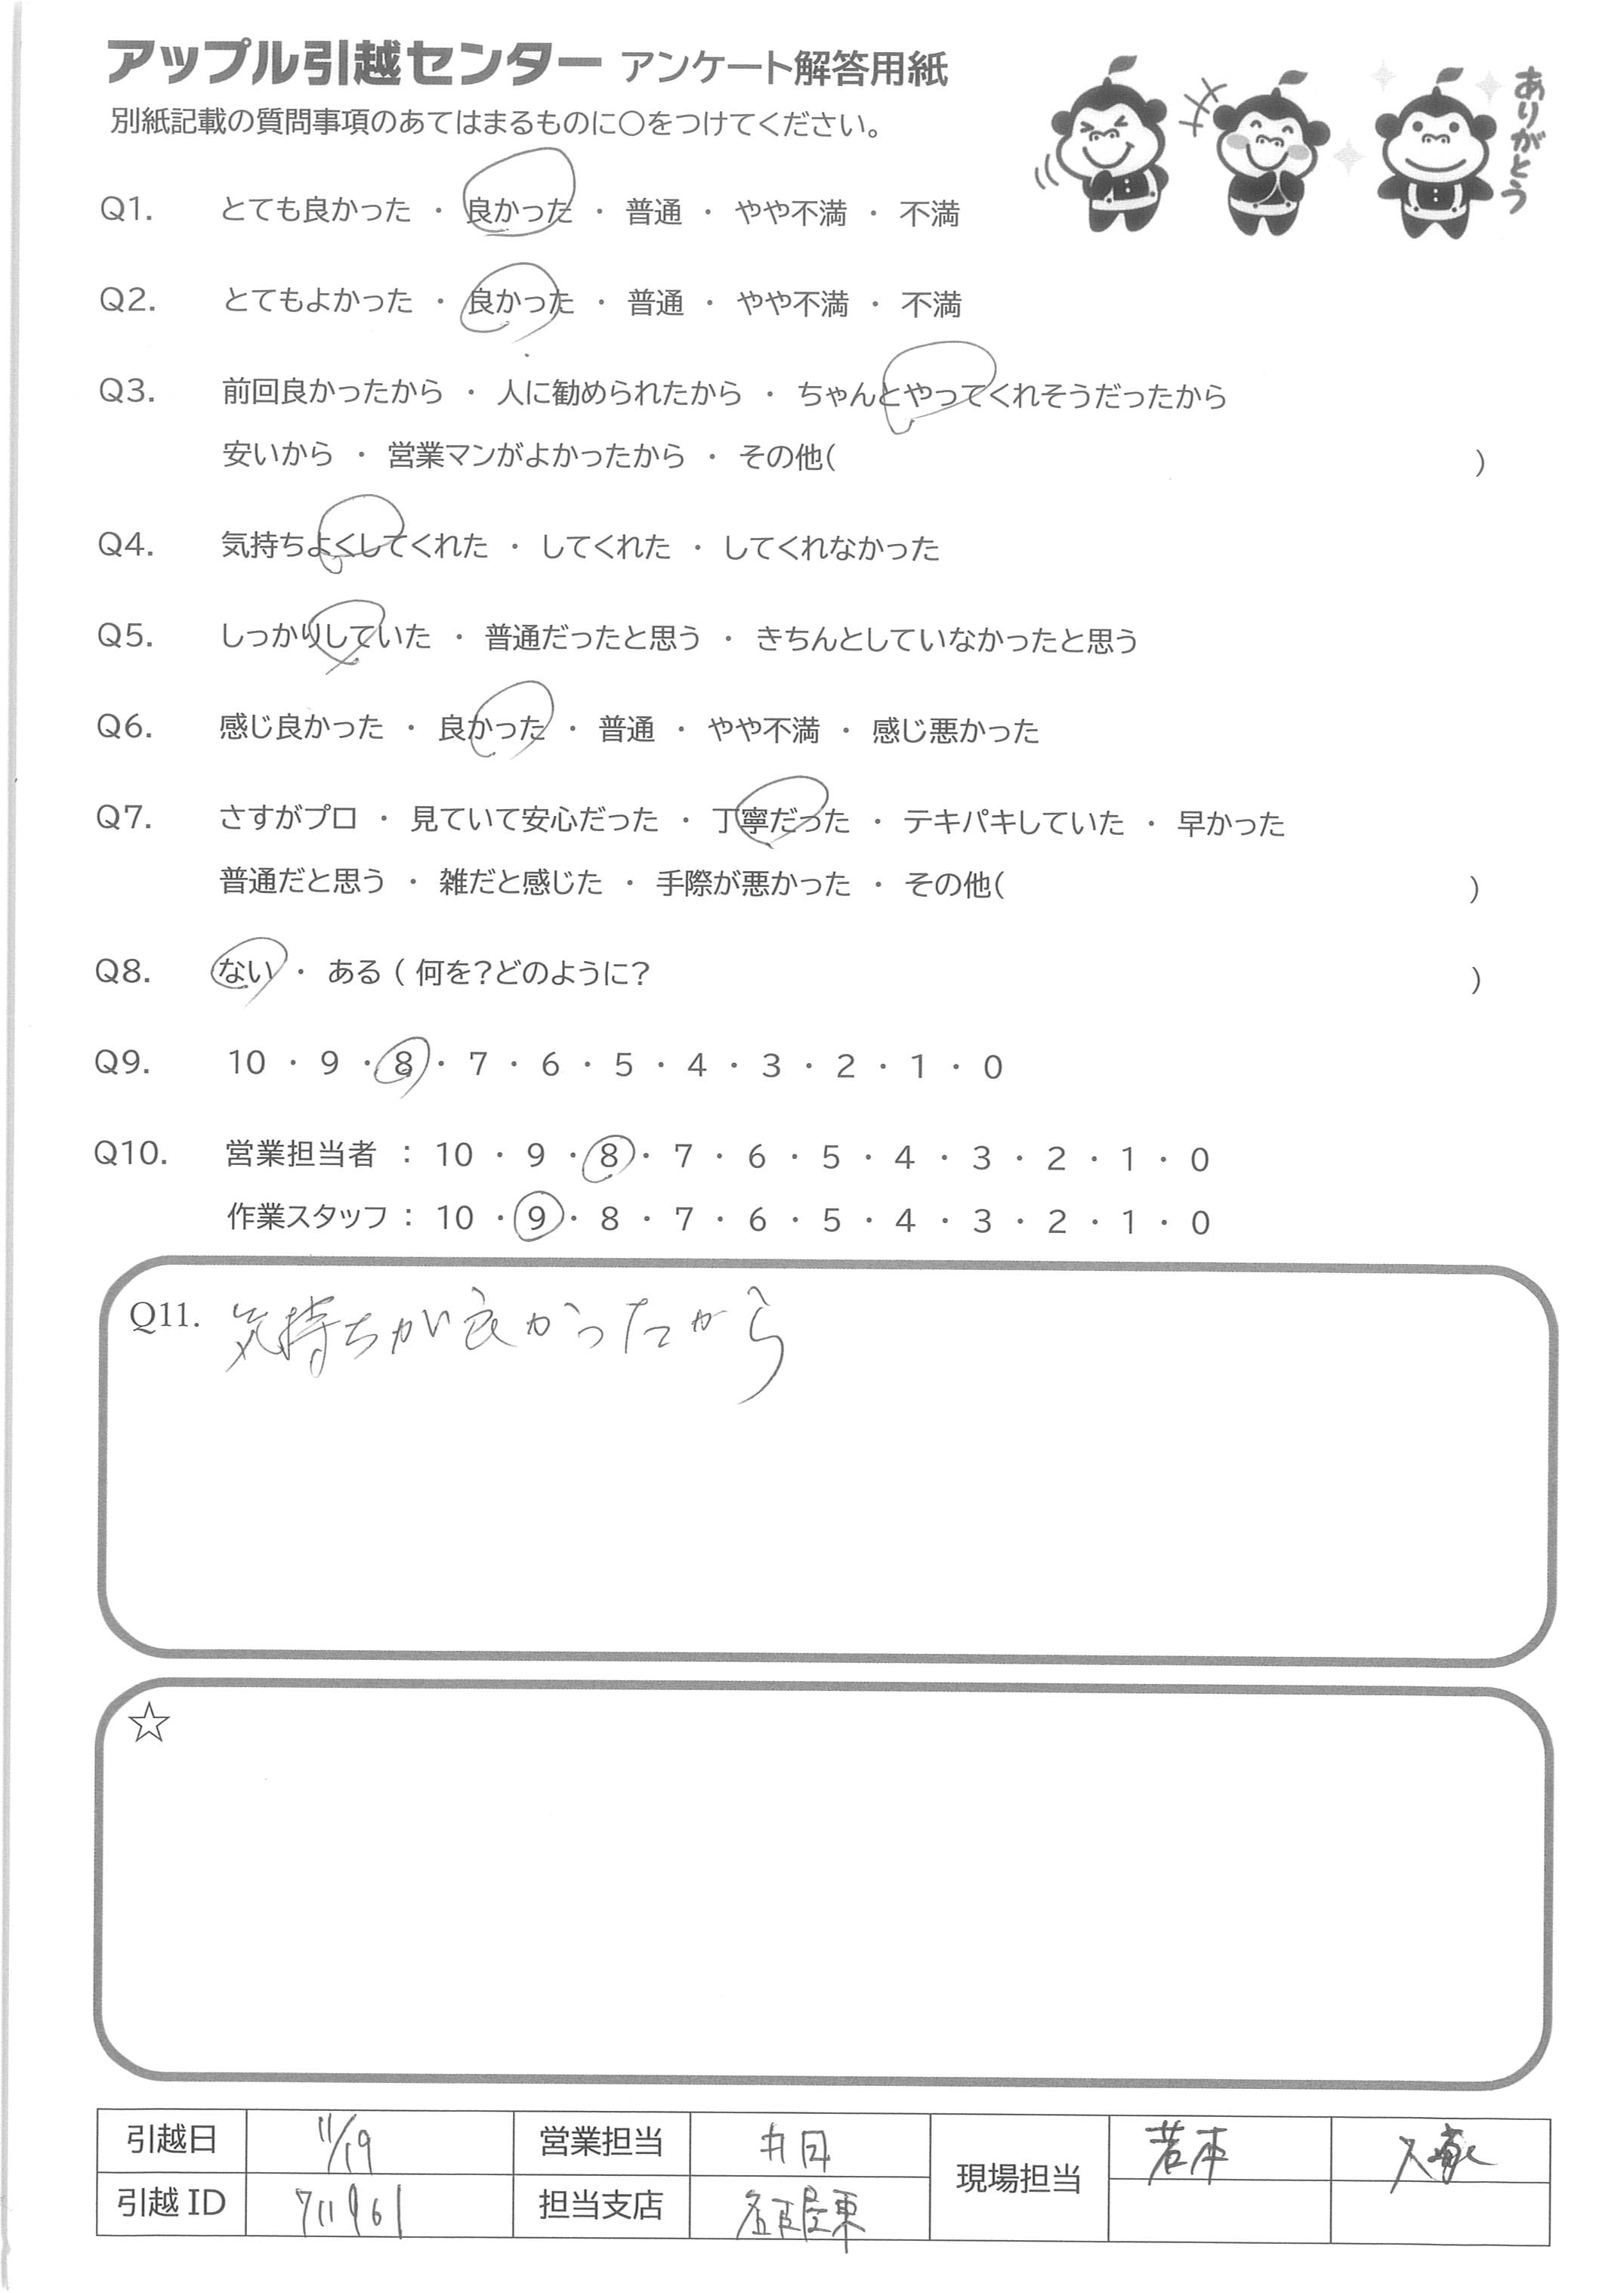 アップル引越センター アンケート解答用紙
別紙記載の質問事項のあてはまるものに○をつけてください。
ありがとう
Q1. とても良かった ・ 良かった ・ 普通 ・ やや不満 ・ 不満
Q2. とてもよかった ・ 良かった ・ 普通 ・ やや不満 ・ 不満
Q3. 前回良かったから ・ 人に勧められたから ・ ちゃんとやってくれそうだったから
安いから ・ 営業マンがよかったから ・ その他( )
Q4. 気持ちよくしてくれた ・ してくれた ・ してくれなかった
Q5. しっかりしていた ・ 普通だったと思う ・ きちんとしていなかったと思う
Q6. 感じ良かった ・ 良かった ・ 普通 ・ やや不満 ・ 感じ悪かった
Q7. さすがプロ ・ 見ていて安心だった ・ 丁寧だった ・ テキパキしていた ・ 早かった
普通だと思う ・ 雑だと感じた ・ 手際が悪かった ・ その他( )
Q8. ない ・ ある ( 何を?どのように? )
Q9. 10 ・ 9 ・ 8 ・ 7 ・ 6 ・ 5 ・ 4 ・ 3 ・ 2 ・ 1 ・ 0
Q10. 営業担当者 : 10 ・ 9 ・ 8 ・ 7 ・ 6 ・ 5 ・ 4 ・ 3 ・ 2 ・ 1 ・ 0
作業スタッフ : 10 ・ 9 ・ 8 ・ 7 ・ 6 ・ 5 ・ 4 ・ 3 ・ 2 ・ 1 ・ 0
Q11. 気持ちが良かったから
☆
引越日 11/19 営業担当 現場担当 若本
引越 ID 711961 担当支店 名古屋東